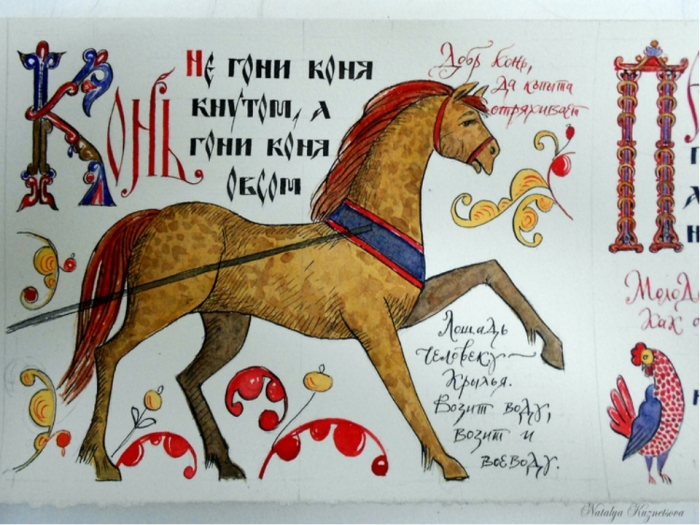 Конь
Не гони коня
кнутом, а
гони коня
овсом
Добр конь,
да копыта
отряхивает
Лошадь
человеку –
крылья.
Возит воду,
возит и
воеводу.
П
Молод
Как
Natalya Kuznetsova